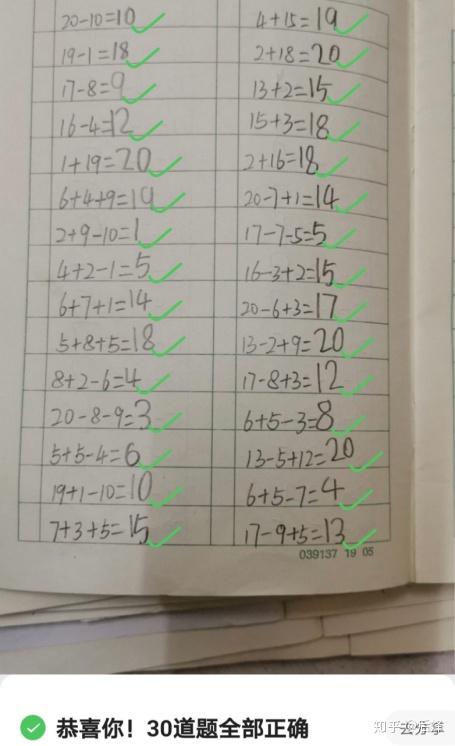 20-10=10
19-1=18
17-8=9
16-4=12
1+19=20
6+4+9=19
2+9-10=1
4+2-1=5
6+7+1=14
5+8+5=18
8+2-6=4
20-8-9=3
5+5-4=6
19+1-10=10
7+3+5=15
4+15=19
2+18=20
13+2=15
15+3=18
2+16=18
20-7+1=14
17-7-5=5
16-3+2=15
20-6+3=17
13-2+9=20
17-8+3=12
6+5-3=8
13-5+12=20
6+5-7=4
17-9+5=13
039137 19 05
恭喜你！30道题全部正确
知乎